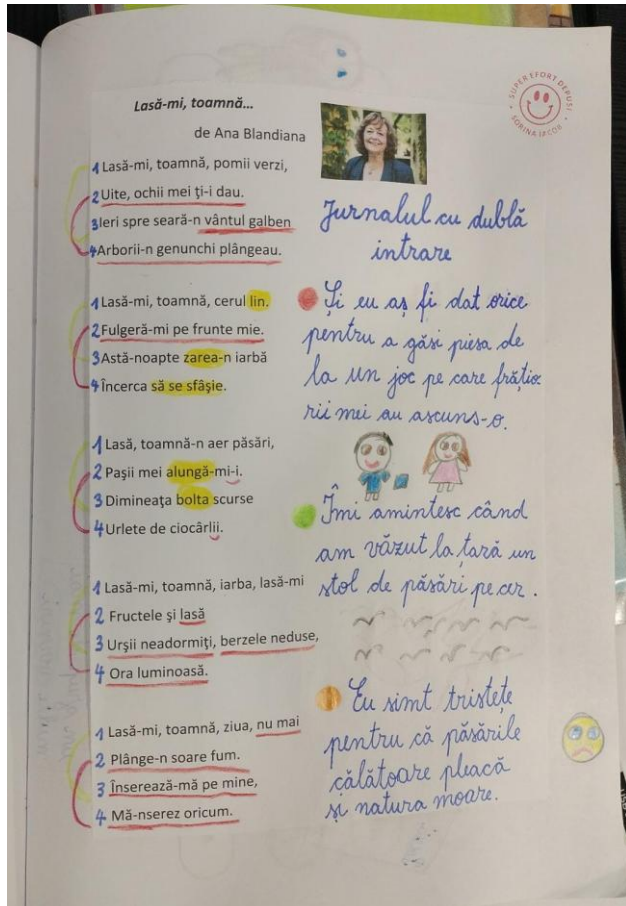 Lasă-mi, toamnă...
de Ana Blandiana
1 Lasă-mi, toamnă, pomii verzi,
2 Uite, ochii mei ți-i dau.
3 Ieri spre seară-n vântul galben
4 Arborii-n genunchi plângeau.
1 Lasă-mi, toamnă, cerul lin.
2 Fulgeră-mi pe frunte mie.
3 Astă-noapte zarea-n iarbă
4 Încerca să se sfâșie.
1 Lasă, toamnă-n aer păsări,
2 Pașii mei alungă-mi-i.
3 Dimineața bolta scurse
4 Urlete de ciocârlii.
1 Lasă-mi, toamnă, iarba, lasă-mi
2 Fructele și lasă
3 Urșii neadormiți, berzele neduse,
4 Ora luminoasă.
1 Lasă-mi, toamnă, ziua, nu mai
2 Plânge-n soare fum.
3 Înserează-mă pe mine,
4 Mă-nserez oricum.
SUPER EFORT DEPUS!
SORINA IACOB
Jurnalul cu dublă
intrare
Și eu aș fi dat orice
pentru a găsi piesa de
la un joc pe care frățio
rii mei au ascuns-o.
Îmi amintesc când
am văzut la țară un
stol de păsări pe cer.
Eu simt tristețe
pentru că păsările
călătoare pleacă
și natura moare.